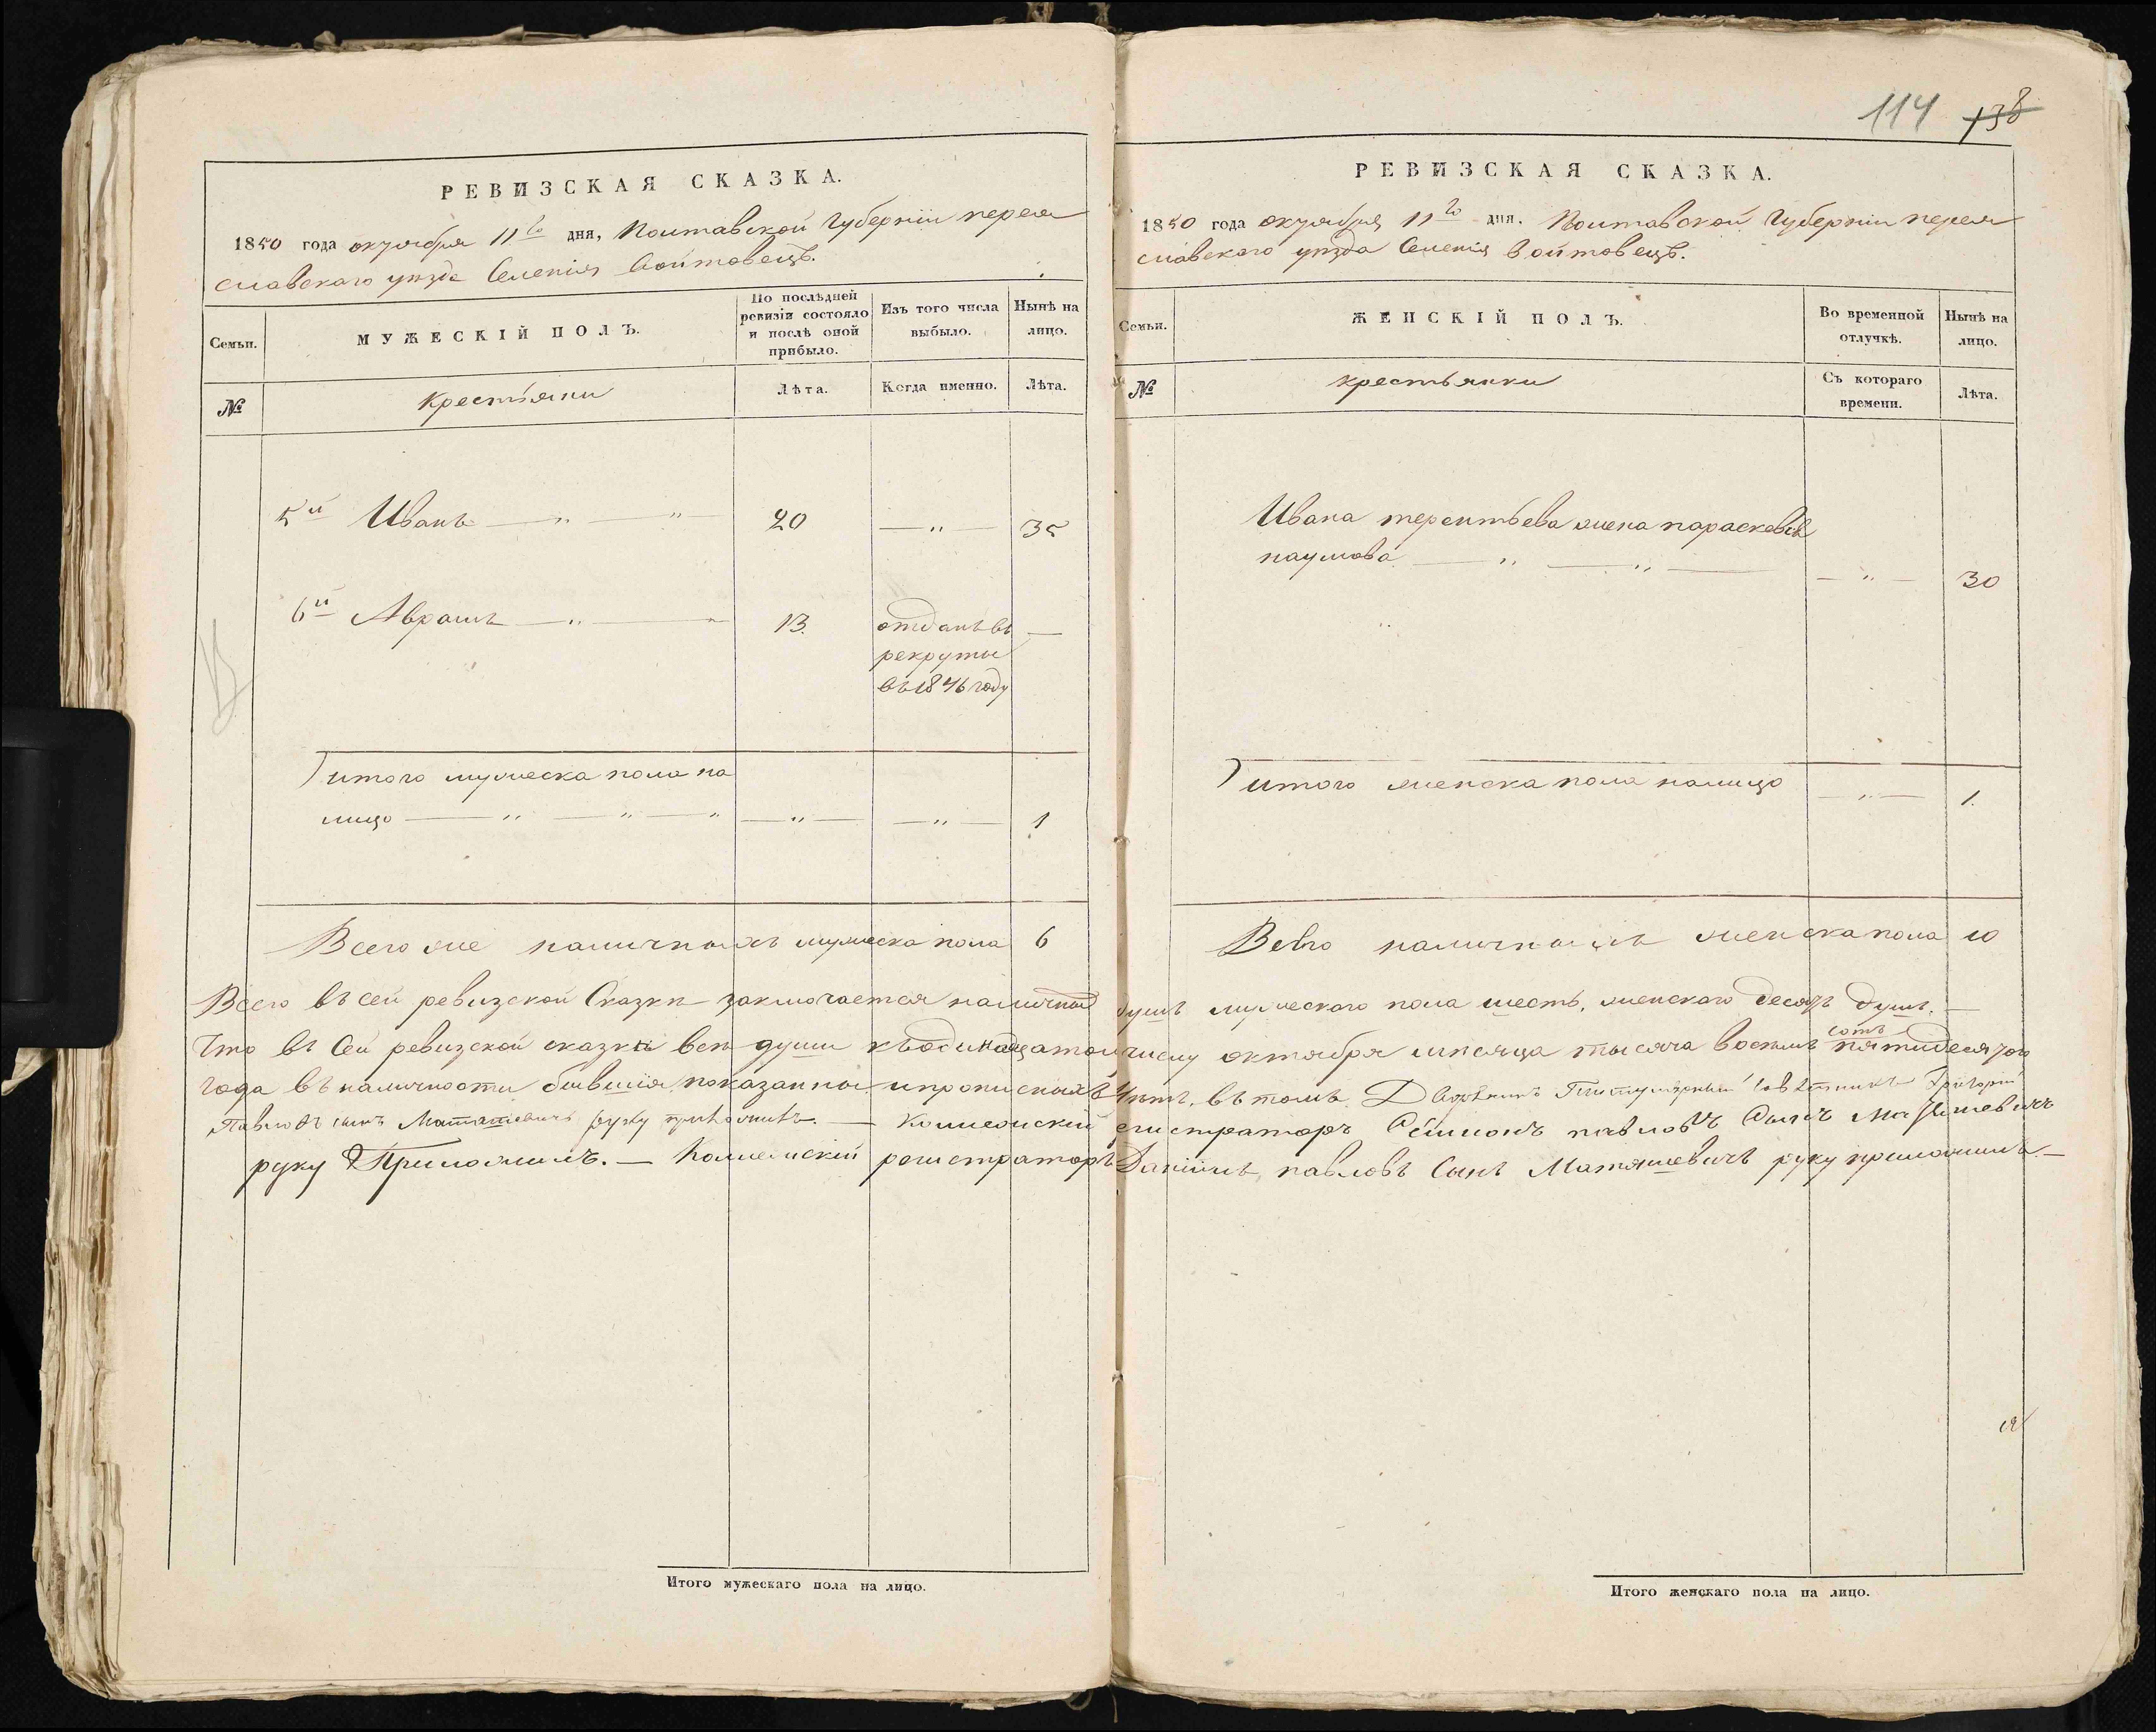 114 138
РЕВИЗСКАЯ СКАЗКА.
1850 года октября 11го дня, Полтавской Губерніи перея
славскаго уѣзда Селенія Войтовецъ.
Семьи.
МУЖЕСКІЙ ПОЛЪ.
По послѣдней
ревизіи состояло
и послѣ оной
прибыло.
Изъ того числа
выбыло.
Нынѣ на
лицо.
№
крестьяни
Лѣта.
Когда именно.
Лѣта.
5й Иванъ — „ — „ 20 — „ — 35
6й Аврамъ — „ — 13. отданъ въ —
рекруты
въ 1846 году
итого мужеска пола на
лицо — „ — „ — „ — „ — — „ — 1
Всего же наличныхъ мужеска пола 6
РЕВИЗСКАЯ СКАЗКА.
1850 года октября 11го дня. Полтавской Губерніи перея
славскаго уѣзда Селенія Войтовецъ.
Семьи.
ЖЕНСКІЙ ПОЛЪ.
Во временной
отлучкѣ.
Нынѣ на
лицо.
№
крестьянки
Съ котораго
времени.
Лѣта.
Ивана терентьева жена параскевія
наумова — „ — „ — — „ — 30
итого женска пола налицо — „ — 1.
Всего наличныхъ женска пола 10
Всего въ сей ревизской Сказки заключается наличных душъ мужескаго пола шесть, женскаго десять душъ. —
Что въ Сей ревизской сказки всѣ души къ одинадцатому числу октября мѣсяца тысяча восемь сотъ пятидесятого
года въ наличности бывшія показанны и прописныхъ нѣтъ, въ томъ Дворянинъ Титулярный Совѣтникъ Григорій
Павловъ сынъ Матяшевичъ руку приложилъ. — Коллежскій регистраторъ Семионъ павловъ Сынъ Матяшевичъ
руку Приложилъ. — Коллежскій регистраторъ Даніилъ павловъ Сынъ Матяшевичъ руку приложилъ. —
Итого мужескаго пола на лицо.
Итого женскаго пола на лицо.